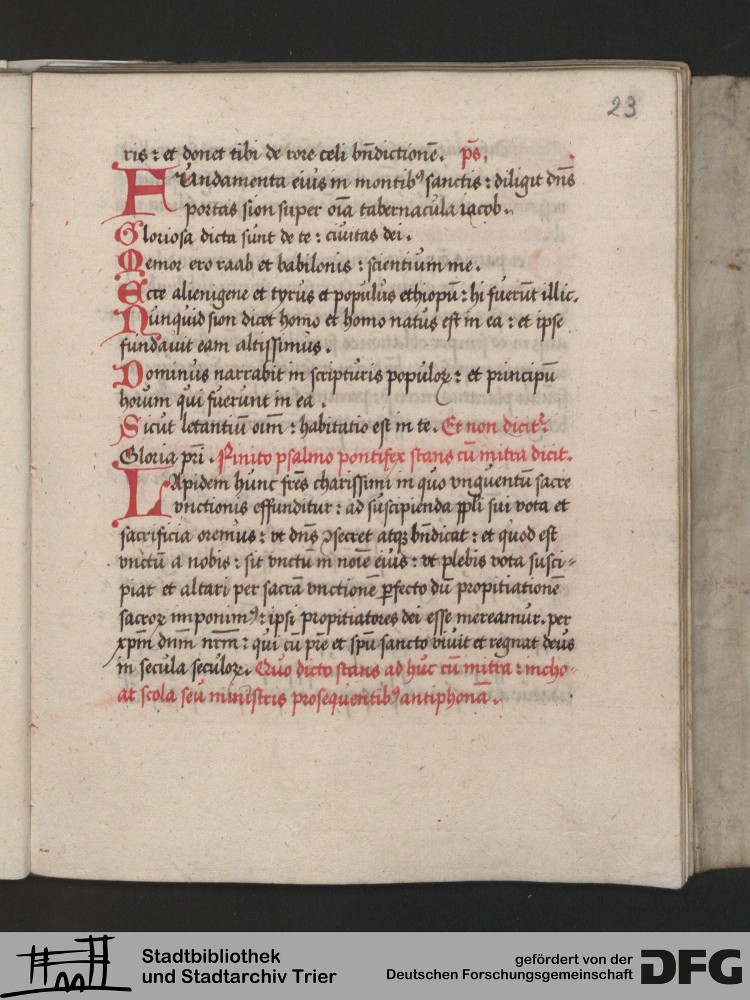 23
ris : et donet tibi de rore celi bn̄dictionē. ps̄.
FUndamenta eius in montibꝰ sanctis : diligit dn̄s
portas sion super oīa tabernacula iacob.
Gloriosa dicta sunt de te : ciuitas dei.
Memor ero raab et babilonis : scientium me.
Ecce alienigene et tyrus et populus ethiopū : hi fuerūt illic.
Nunquid sion dicet homo et homo natus est in ea : et ipse
fundauit eam altissimus.
Dominus narrabit in scripturis populoꝝ : et principū
horum qui fuerunt in ea.
Sicut letantiū oīm : habitatio est in te. Et non dicit᷑
Gloria pr̄i. Finito psalmo pontifex stans cū mitra dicit.
LApidem hunc fr̄es charissimi in quo vnguentū sacre
vnctionis effunditur : ad suscipienda ppl̄i sui vota et
sacrificia oremus : vt dn̄s ↄsecret atqꝫ bn̄dicat : et quod est
vnctū a nobis : sit vnctū in noīe eius : vt plebis vota susci-
piat et altari per sacrā vnctionē ꝑfecto dū propitiationē
sacroꝝ imponimꝰ : ipsi propitiatores dei esse mereamur. per
xpm̄ dnm̄ nrm̄ : qui cū pr̄e et spū sancto viuit et regnat deus
in secula seculoꝝ. Quo dicto stans ad huc cū mitra : incho-
at scola seu ministris prosequentibꝰ antiphonā.
Stadtbibliothek
und Stadtarchiv Trier
gefördert von der
Deutschen Forschungsgemeinschaft
DFG